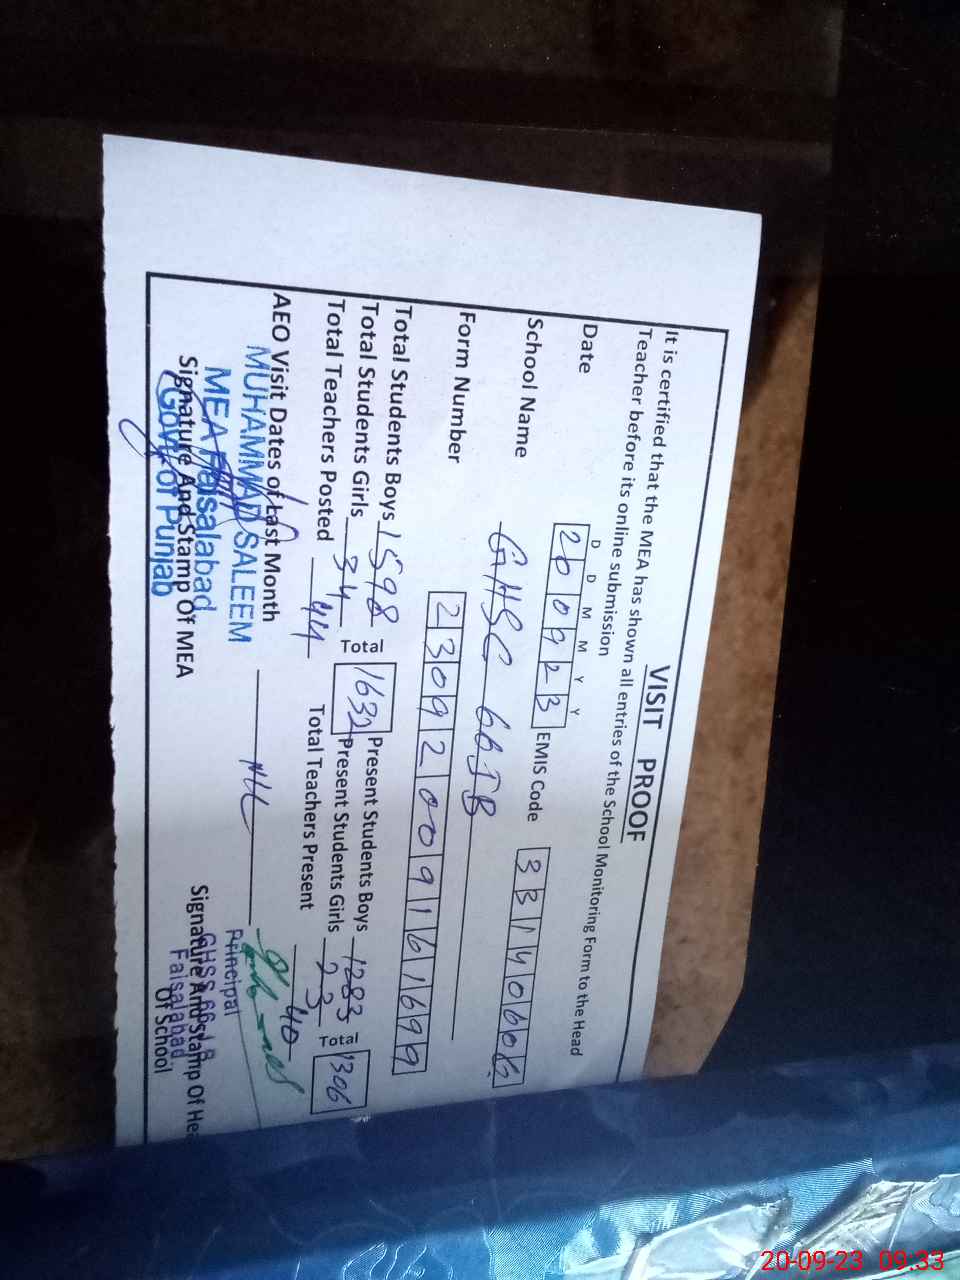 VISIT PROOF
It is certified that the MEA has shown all entries of the School Monitoring Form to the Head
Teacher before its online submission
D D M M Y Y
Date 200923 EMIS Code 33140606
School Name GHSC 66JB
Form Number 23092009161699
Total Students Boys 1598 Total 1632 Present Students Boys 1283 Total 1306
Total Students Girls 34 Present Students Girls 23
Total Teachers Posted 44 Total Teachers Present 40
AEO Visit Dates of Last Month NIL
MUHAMMAD SALEEM
MEA Faisalabad
Govt. of Punjab
Signature And Stamp Of MEA
Principal
GHSS 66 J.B
Faisalabad
Signature And Stamp Of Hea
Of School
20-09-23 09:33